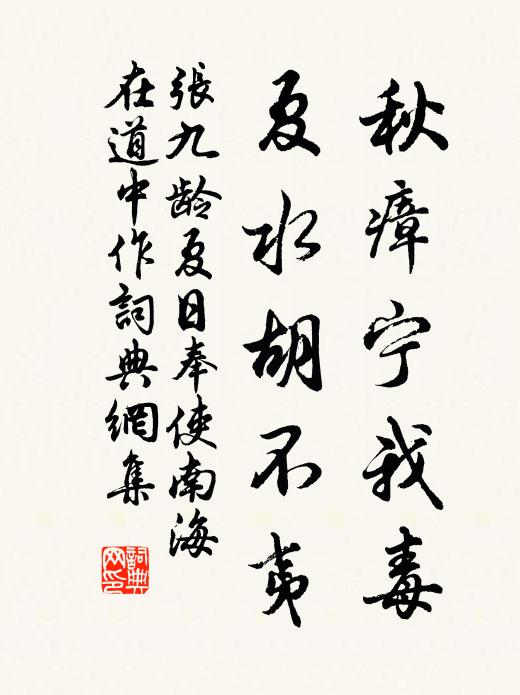 秋瘴宁我毒
夏水胡不夷
張九龄夏日奉使南海
在道中作詞典網集
詞典网印